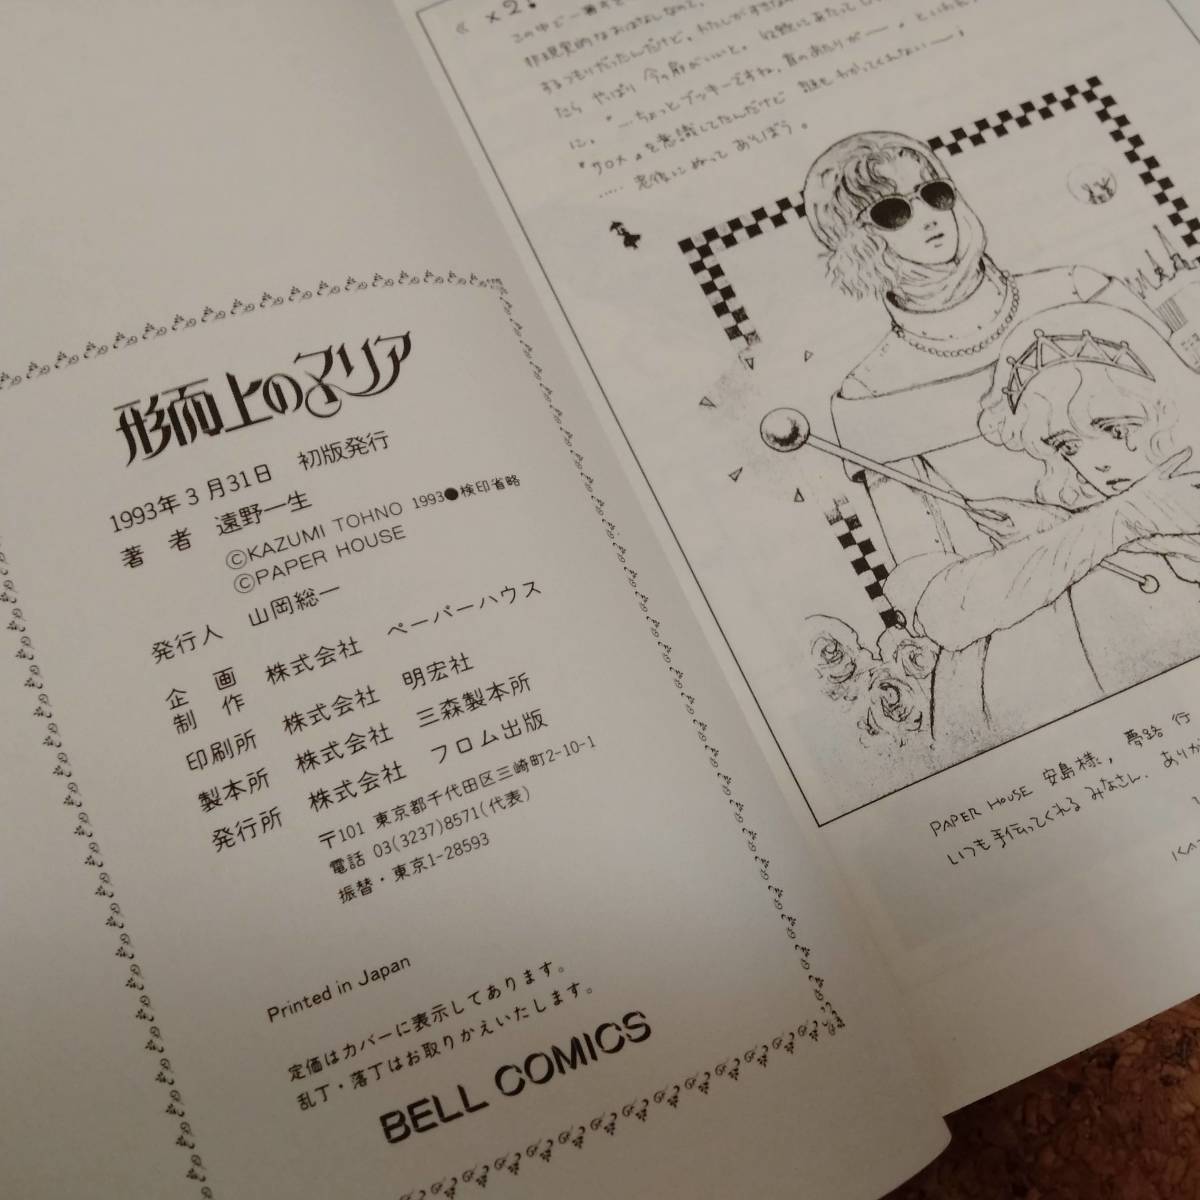 形而上のマリア
1993年3月31日 初版発行
著者 遠野一生
©KAZUMI TOHNO 1993●検印省略
©PAPER HOUSE
発行人 山岡総一
企画
制作 株式会社 ペーパーハウス
印刷所 株式会社 明宏社
製本所 株式会社 三森製本所
発行所 株式会社 フロム出版
〒101 東京都千代田区三崎町2-10-1
電話 03(3237)8571(代表)
振替・東京1-28593
Printed in Japan
定価はカバーに表示してあります。
乱丁・落丁はお取りかえいたします。
BELL COMICS
×2!
この中で一番
非現実的なおはなしなので、わたしがすきな
するつもりだったんだけど。収録にあたって
たら やっぱり 今の
に。"…ちょっとブッキーですね、首のあたりが――"といわれ
『クロス』を意識してたんだけど 誰もわかってくれない――!
…… 老後にぬって あそぼう。
PAPER HOUSE 安島様, 夢路 行
いつも手伝ってくれる みなさん. ありが
KAZ